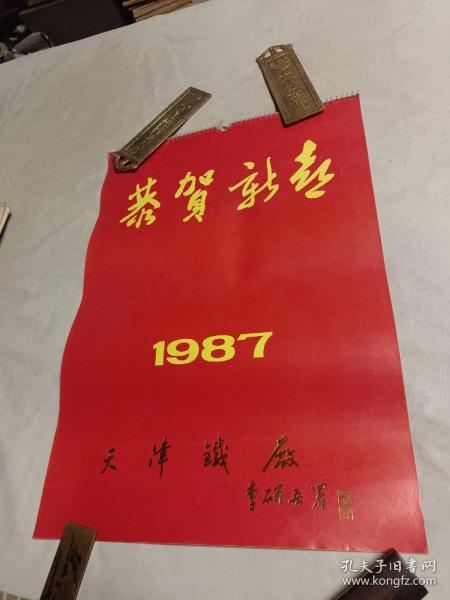 恭賀新禧
1987
天津鐵廠
李研吾署
孔夫子旧书网
www.kongfz.com